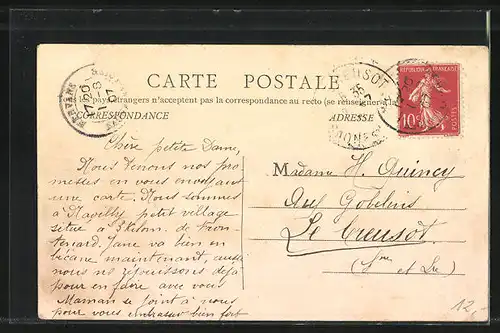 CARTE POSTALE
les pays étrangers n'acceptent pas la correspondance au recto (se renseigner
CORRESPONDANCE
ADRESSE
REPUBLIQUE FRANÇAISE
10c
POSTES
Chère petite Dame,
Nous tenons nos pro
messes en vous envoyant
une carte. Nous sommes
à petit village
situé à de
bien en
bécane maintenant, aussi
nous nous réjouissons déjà
pour en faire avec vous
Maman se joint à nous
pour vous embrasser bien fort
Madame H. Quincy
Aux Gobelins
Le Creusot
(Sne et Lre)
12,-